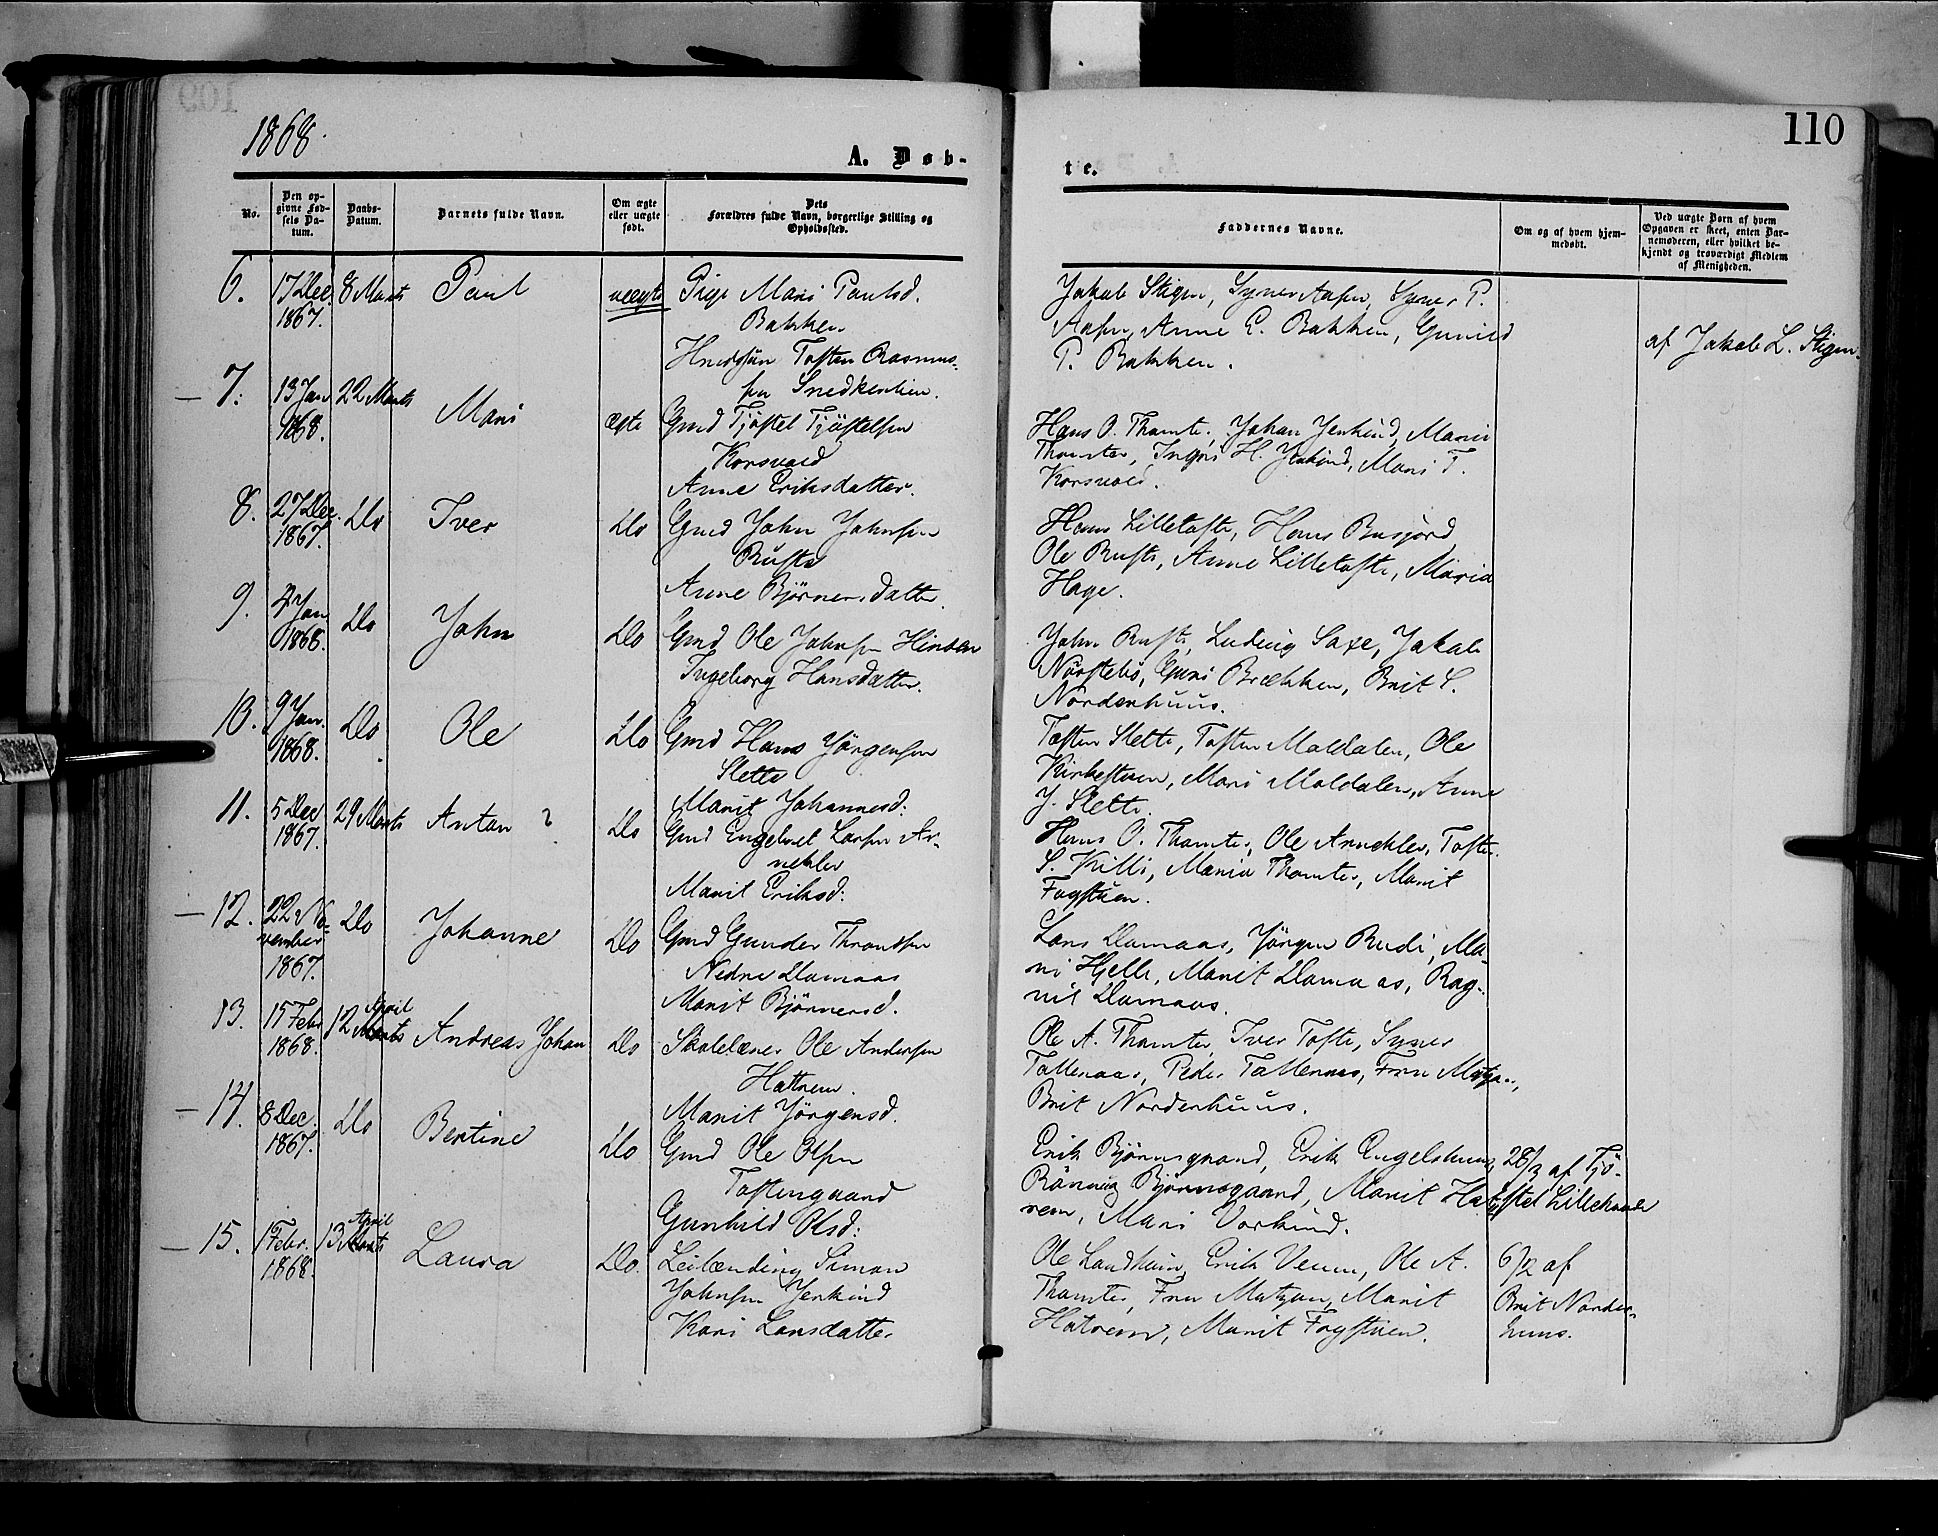 1868.
110
A. Døb-
te.
No.
Den op-
givne Fød-
sels Da-
tum.
Daabs-
Datum.
Barnets fulde Navn.
Om ægte
eller uægte
født.
Dets
Forældres fulde Navn, borgerlige Stilling og
Opholdssted.
Faddernes Navne.
Om og af hvem hjem-
medøbt.
Ved uægte Børn af hvem
Opgaven er skeet, enten Bar-
nemoderen, eller hvilket be-
kjendt og troværdigt Medlem
af Menigheden.
6. 17 Dec. 1867. 8 Marts Paul uægte Pige Mari Paulsd.
Bakken
Tosten Rasmus-
sen
Jakob Stigen, Syver Aasen, Syver P.
Aasen, Anne E. Bakken, Gunild
P. Bakken.
af Jakob L. Stigen.
7. 13 Jan 1868. 22 Marts Mari ægte Gmd Tjøstel Tjøstelsen
Korsvold
Anne Eriksdatter.
Hans O. Thomte, Johan Jenkind, Mari
Thomter, Ingri H. Jenkind, Mari T.
Korsvold.
8. 27 Dec. 1867. Do Iver Do Gmd John Johnsen
Rusten
Anne Bjørnersdatter.
Hans Lilletofte, Hans Busjord
Ole Ruste, Anne Lilletofte, Maria
Hage.
9. 4 Jan 1868. Do John Do Gmd Ole Johnsen Hinden
Ingeborg Hansdatter.
John Ruste, Ludvig Saxe, Jakob
Nørstebø, Guri Brækken, Brit S.
Norderhuus.
10. 9 Jan. 1868. Do Ole Do Gmd Hans Jørgensen
Slette
Marit Johannesd.
Tosten Slette, Tosten Moldalen, Ole
Kirkestuen, Mari Moldalen, Anne
J. Slette.
11. 5 Dec 1867. 29 Marts Anton ? Do Gmd Engebret Larsen Ar-
nekler
Marit Eriksd:
Hans O. Thomter, Ole Arnekler, Tosten
S. Killi, Maria Thomter, Marit
Fagstuen.
12. 22 No-
vember
1867. Do Johanne Do Gmd Gunder Throndsen
Nedre Damaas
Marit Bjørnersd.
Lars Damaas, Jørgen Rudi, Ma-
ri Hjelle, Marit Damaas, Rag-
nil Damaas.
13. 15 Febr 1868. 12 April Andreas Johan Do Skolelærer Ole Andersen
Hattrem.
Marit Jørgensd.
Ole A. Thomter, Iver Tofte, Syver
Tallenaas, Peder Tallenaas, Fru Matzow,
Brit Norderhuus.
14. 8 Dec. 1867. Do Bertine Do Gmd Ole Olsen
Tostengaard
Gunhild Olsd:
Erik Bjørnsgaard, Erik Engelshuus,
Rønnaug Bjørnsgaard, Marit Hat-
rem, Mari Vorkind.
28/3 af Tjø-
stel
15. 1 Febr. 1868. 13 April Laura Do. Leilænding Simon
Johnsen Jenkind
Kari Larsdatter
Ole Landheim, Erik Veum, Ole A.
Thomter, Fru Matzow, Marit
Hatrem, Marit Fagstuen.
6/2 af
Brit Norder-
huus.